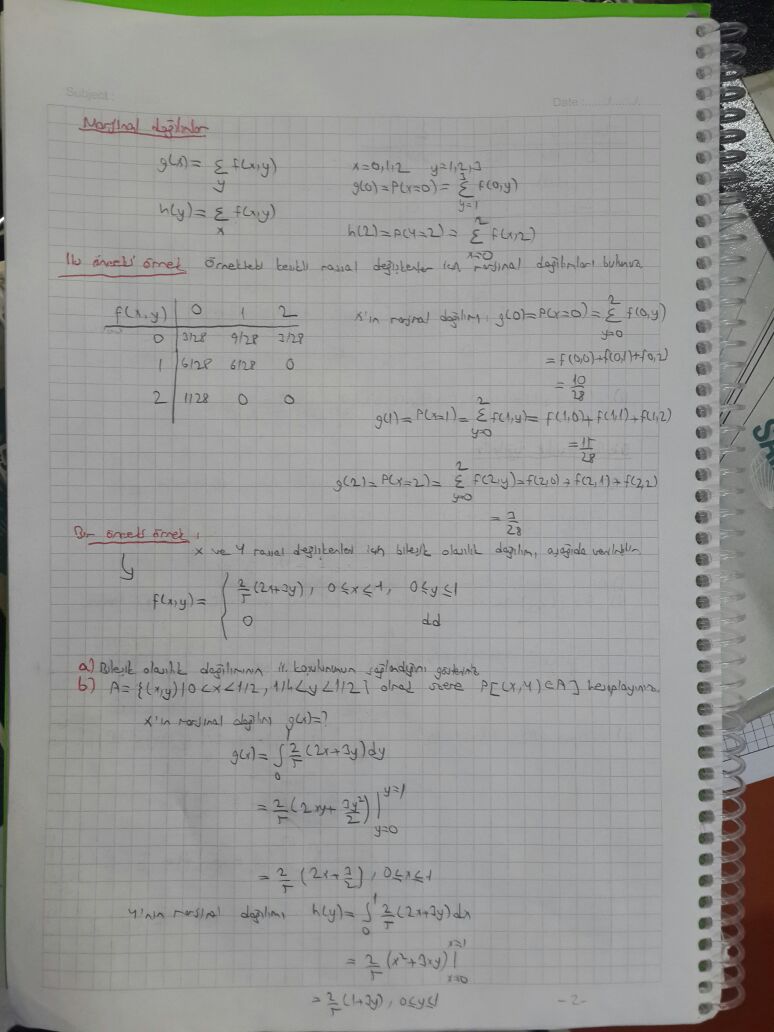 Subject:
Date:....../....../......
Marjinal dağılımlar
g(x) = Σ_y f(x,y)    x=0,1,2    y=1,2,3
g(0) = P(x=0) = Σ_{y=1}^{3} f(0,y)
h(y) = Σ_x f(x,y)
h(2) = P(Y=2) = Σ_{x=0}^{2} f(x,2)
İki önceki örnek örnekteki kesikli rassal değişkenler için marjinal dağılımları bulunuz.
f(x,y) | 0 1 2
0 | 3/28 9/28 3/28
1 | 6/28 6/28 0
2 | 1/28 0 0
X'in marjinal dağılımı: g(0) = P(x=0) = Σ_{y=0}^{2} f(0,y)
= f(0,0)+f(0,1)+f(0,2)
= 10/28
g(1) = P(x=1) = Σ_{y=0}^{2} f(1,y) = f(1,0)+f(1,1)+f(1,2)
= 15/28
g(2) = P(x=2) = Σ_{y=0}^{2} f(2,y) = f(2,0)+f(2,1)+f(2,2)
= 3/28
Bir önceki örnek:
X ve Y rassal değişkenleri için bileşik olasılık dağılımı, aşağıda verilmiştir
f(x,y) = { 2/5 (2x+3y), 0≤x≤1, 0≤y≤1
0    dd
a) Bileşik olasılık dağılımının iki koşulununun sağlandığını gösteriniz
b) A={(x,y)|0<x<1/2, 1/4<y<1/2} olmak üzere P[(X,Y)∈A] hesaplayınız.
X'in marjinal dağılımı g(x)=?
g(x) = ∫_0^1 2/5 (2x+3y) dy
= 2/5 (2xy + 3y²/2) |_{y=0}^{y=1}
= 2/5 (2x+3/2), 0≤x≤1
Y'nin marjinal dağılımı h(y) = ∫_0^1 2/5 (2x+3y) dx
= 2/5 (x²+3xy) |_{x=0}^{x=1}
= 2/5 (1+3y), 0≤y≤1
-2-